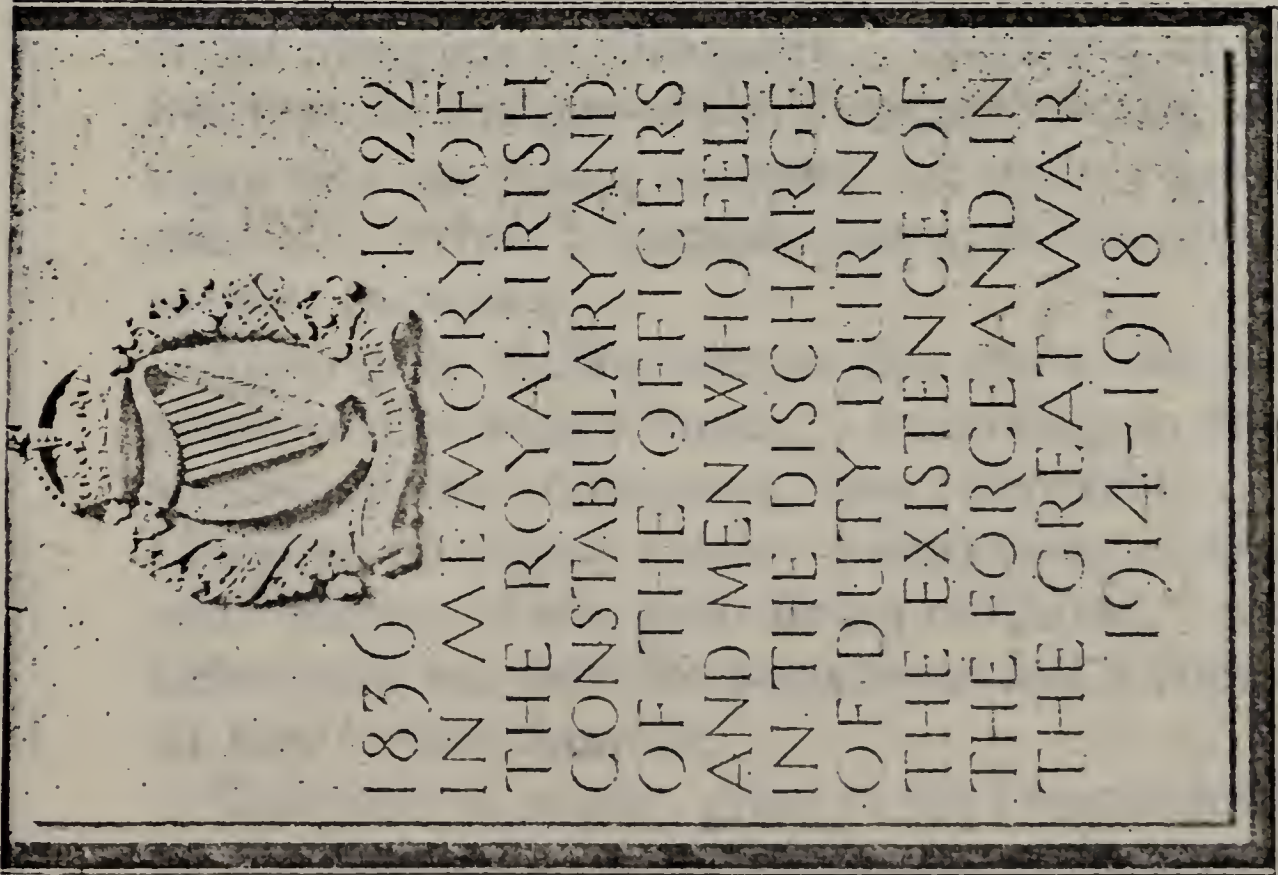 1836 1922
IN MEMORY OF
THE ROYAL IRISH
CONSTABULARY AND
OF THE OFFICERS
AND MEN WHO FELL
IN THE DISCHARGE
OF DUTY DURING
THE EXISTENCE OF
THE FORCE AND IN
THE GREAT WAR
1914-1918